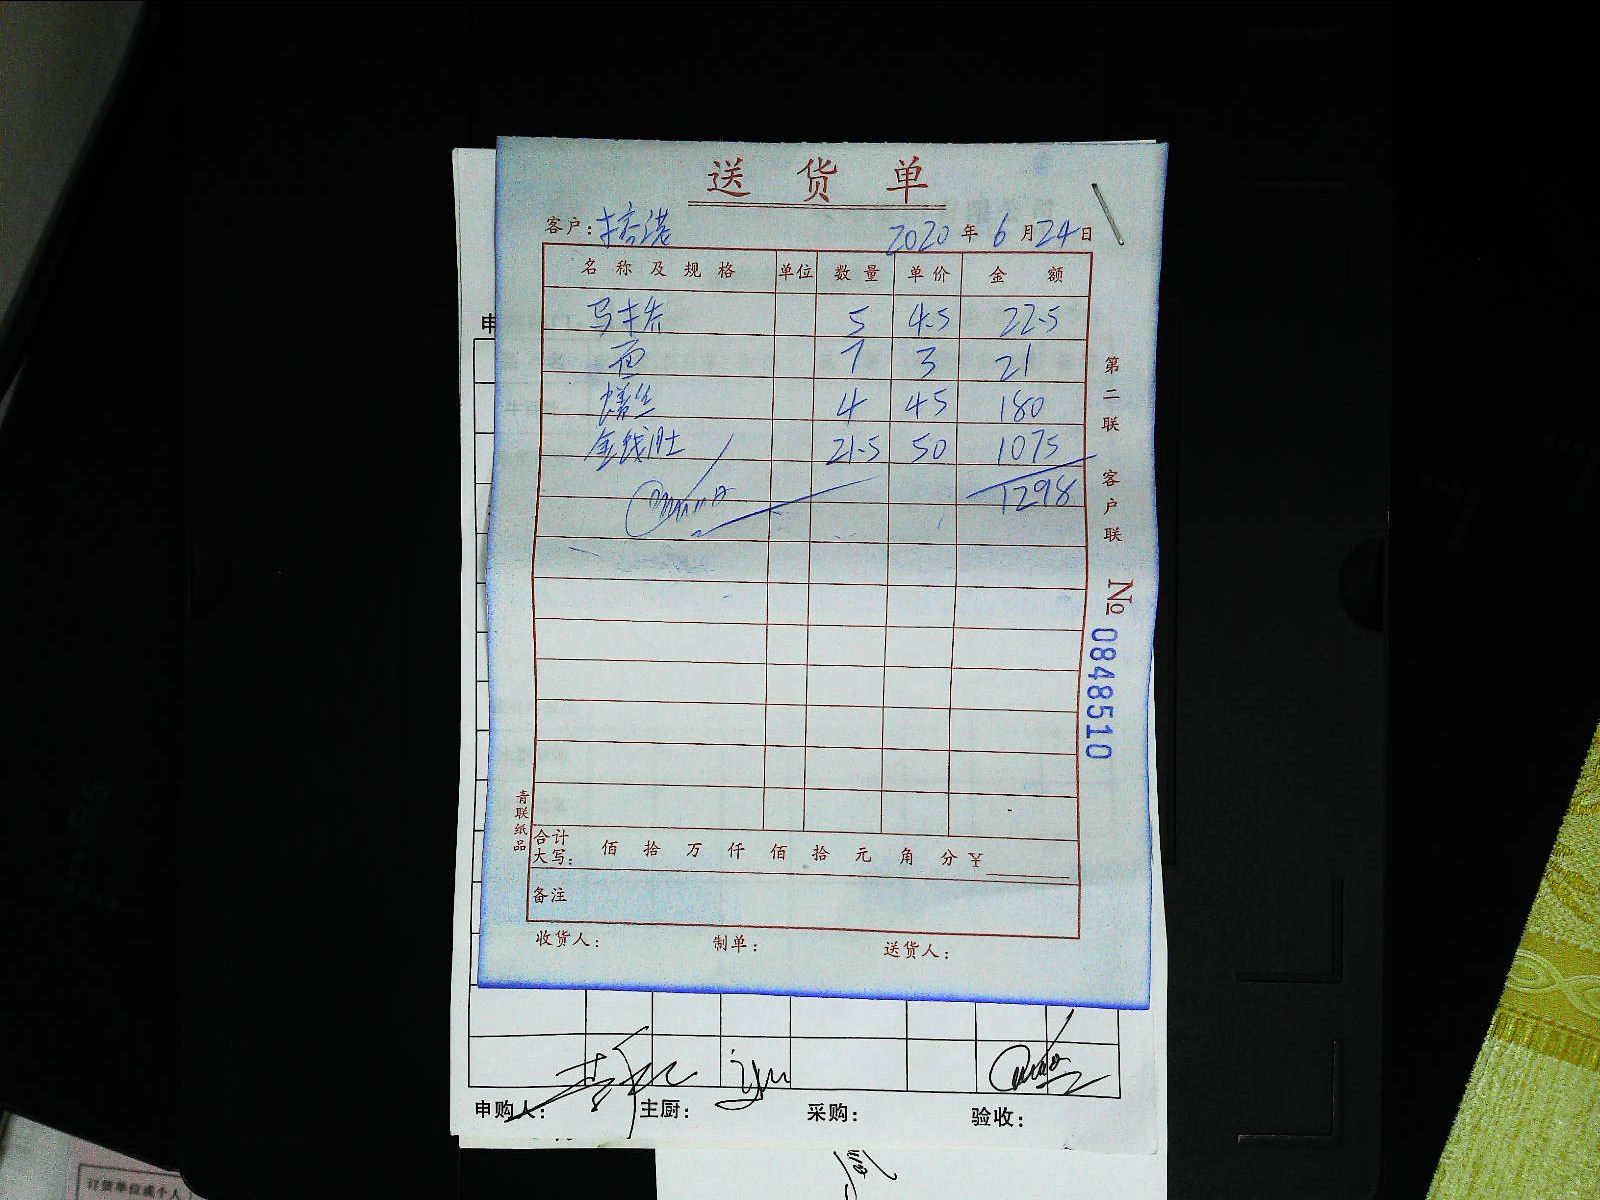 送货单
客户: 2020年6月24日
名称及规格 单位 数量 单价 金额
5 4.5 22.5
面 7 3 21
鳝丝 4 45 180
金钱肚 21.5 50 1075
1298
第二联 客户联
№ 0848510
青联纸品
合计大写: 佰 拾 万 仟 佰 拾 元 角 分 ¥
备注
收货人: 制单: 送货人:
申
申购人: 主厨: 采购: 验收:
订货单位或个人